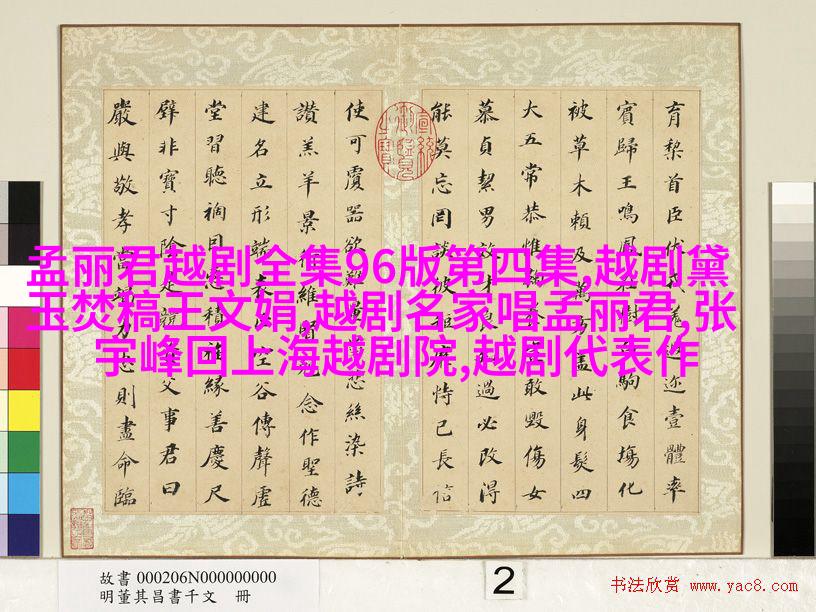 育梨首臣伏戎羌遐迩壹體率
賓歸王鳴鳳在樹白駒食場化
被草木賴及萬方蓋此身髮四
大五常恭惟鞠養豈敢毀傷女
慕貞絜男效才良知過必改得
能莫忘罔談彼短靡恃己長信
使可覆器欲難量墨悲絲染詩
讚羔羊景行維賢克念作聖德
建名立形端表正空谷傳聲虛
堂習聽禍因惡積福緣善慶尺
璧非寶寸陰是競資父事君曰
嚴與敬孝當竭力忠則盡命臨
孟丽君越剧全集96版第四集,越剧黛
玉焚稿王文娟,越剧名家唱孟丽君,张
宇峰回上海越剧院,越剧代表作
故書 000206N000000000
明董其昌書千文 冊
2
书法欣赏 www.yac8.com